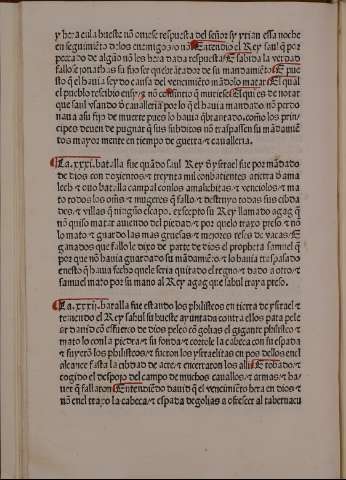 y hera eula hueste nō ouiese respuesta del señor sy yrian essa noche
en seguimiēto dlos enemigos o nō Entendio el Rey saul q̄ por
peccado de algūo nō los hera dada respuesta Esabida la verdad
fallo se jonathas su fijo ser quebrātador de su mandamiēto Epue
sto q̄ el hauia seydo causa del vencimiēto mādolo matar El qual
el pueblo rescibio en sy z nō consintio q̄ muriese El qui es de notar
que saul vsando d̄ caualleria por lo q̄ el hauia mandado nō perdo
naua a su fijo de muerte pues lo hauia q̄brantado. como los prin
cipes deuen de pugnar q̄ sus subditos nō traspassen su mādamiē
tos mayor mente en tiempo de guerra z caualleria.
La .xxxi. batalla fue quādo saul Rey d̄ ysrael fue por mādado
de dios con dozientos z treynta mil conbatientes
lech z ouo batalla campal con los amalechitas z venciolos z ma
to todos los oñs z mugeres q̄ fallo z destruyo todas sus cibda
des. z villas q̄ ningūo escapo. excepto su Rey llamado agag q̄
nō quiso matar auiendo del piedad z por quelo traxo preso z nō
lo mato z guardo las mas gruesas z mejores reses de vacas z
ganados que fallo le dixo de parte de dios el propheta samuel q̄
por que nō hauia guardado su mādamiēto z lo hauia traspasado
enesto q̄ hauia fecho quele seria quitado el regno z dado a otro z
samuel mato por su mano al Rey agag que sahul traya preso.
La .xxxii. batalla fue estando los philisteos en tierra de ysrael z
teniendo el Rey sahul su hueste ayuntada contra ellos para pele
ar dauid cō esfuerço de dios peleo cō golias el gigante philisteo z
mato lo con la piedra z su fonda z cortole la cabeça con su espada
z fuyerō los philisteos z fueron los ysraelitas en pos dellos enel
alcance fasta la cibdad de z encerraron los alli Erobado z
cogido el despojo del campo de muchos cauallos z armas z ha
uer q̄ fallaron Entendiēdo dauid q̄ el vencimiēto hera en dios z
nō enel traxo la cabeça z espada de golias a ofrescer al tabernacu